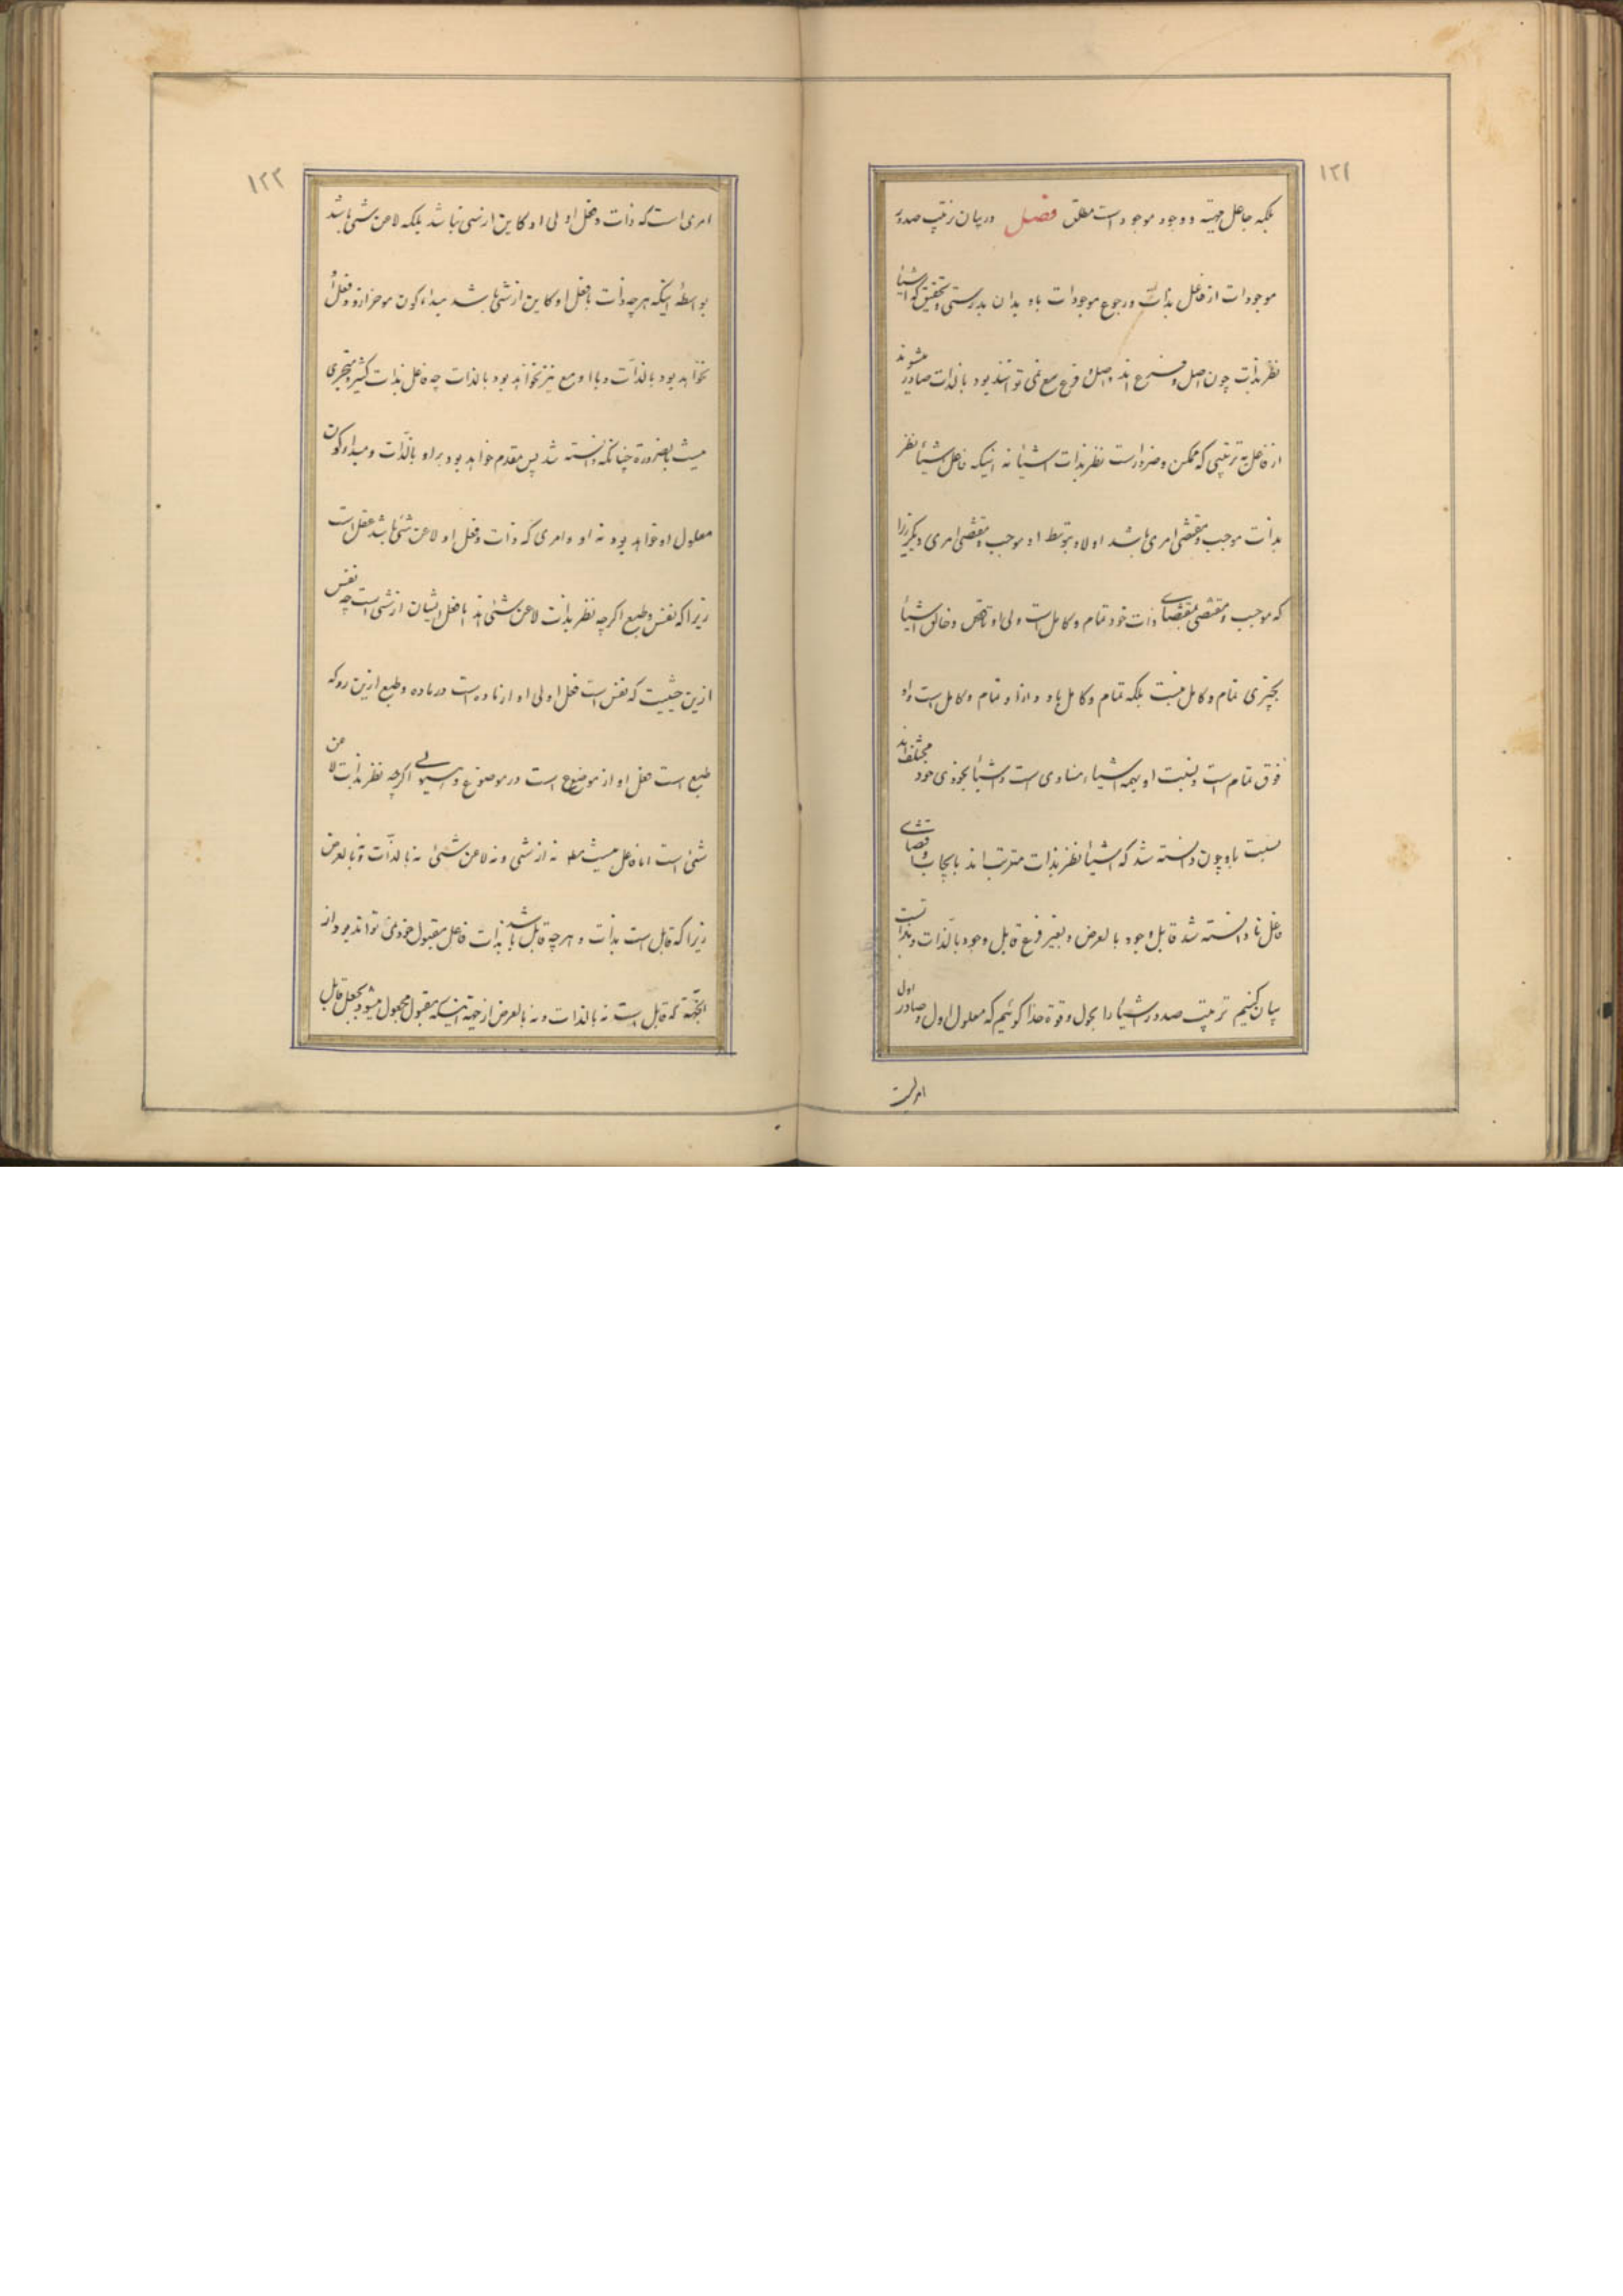 ۱۲۱
بلکه جاعل مهیّه و وجود موجود است مطلق فصل در بیان ترتیب صدور
موجودات از فاعل بذات و رجوع موجودات باو بدان بدرستی و تحقیق که اشیا
نظر بذات چون اصل و فرع اند و اصل و فرع مع نمی توانند بود بالذات صادر میشوند
از فاعل به ترتیبی که ممکن و ضرور است نظر بذات اشیا نه اینکه فاعل اشیا نظر
بذات موجب و مقتضی امری باشد اولا و بتوسط او موجب و مقتضی امری دیگر زیرا
که موجب و مقتضی بمقتضای ذات خود تمام و کامل است ولی او ناقص و خالق اشیا
بچیزی تمام و کامل نیست بلکه تمام و کامل باو و ازاو تمام و کامل است و او
فوق تمام است و نسبت او بهمه اشیاء متساوی است و اشیا بخودی خود مختلف اند
نسبت باو چون دانسته شد که اشیا نظر بذات مترتب اند بایجاب و اقتضای
فاعل تا دانسته شد قابل وجود بالعرض و بغیر فرع قابل وجود بالذات و بذات است
بیان کنیم ترتیب صدور اشیا را بحول و قوة خدا گوئیم که معلول اول و صادر اول
امریست
۱۲۲
امری است که ذات و فعل اولی او کاین از شی نباشد بلکه لا عن شئ باشد
بواسطه اینکه هرچه ذات یا فعل او کاین از شئ باشد مبداء کون موخر ازو و فعل او
نخواهد بود بالذات و با او مع نیز نخواهد بود بالذات چه فاعل بذات کثیر و متجزی
نیست بالضرورة چنانکه دانسته شد پس مقدم خواهد بود بر او بالذات و مبداء کون
معلول او خواهد بود نه او و امری که ذات و فعل او لا عن شئ باشد عقل است
زیرا که نفس و طبع اگرچه نظر بذات لا عن شئ اند اما فعل ایشان از شئ است چه نفس
ازین حیثیت که نفس است فعل اولی او از ماده است در ماده و طبع ازین رو که
طبع است فعل او از موضوع است در موضوع و هیولی اگرچه نظر بذات لا عن
شئ است اما فاعل نیست نه از شی و نه لا عن شئ نه بالذات و نه بالعرض
زیرا که قابل است بذات و هرچه قابل باشد بذات فاعل مقبول خود نمی تواند بود از
آنجهة که قابل است نه بالذات و نه بالعرض از جهة اینکه مقبول مجعول میشود بجعل قابل